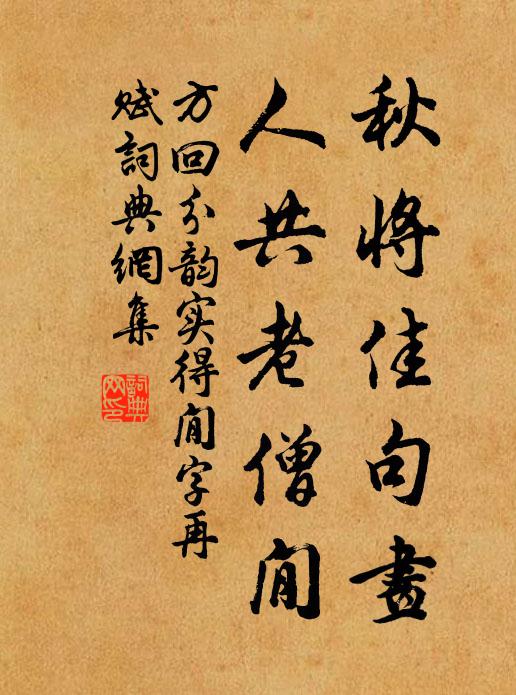 秋將佳句畫
人共老僧閒
方回分韵实得閒字再
賦詞典網集
詞典
网印